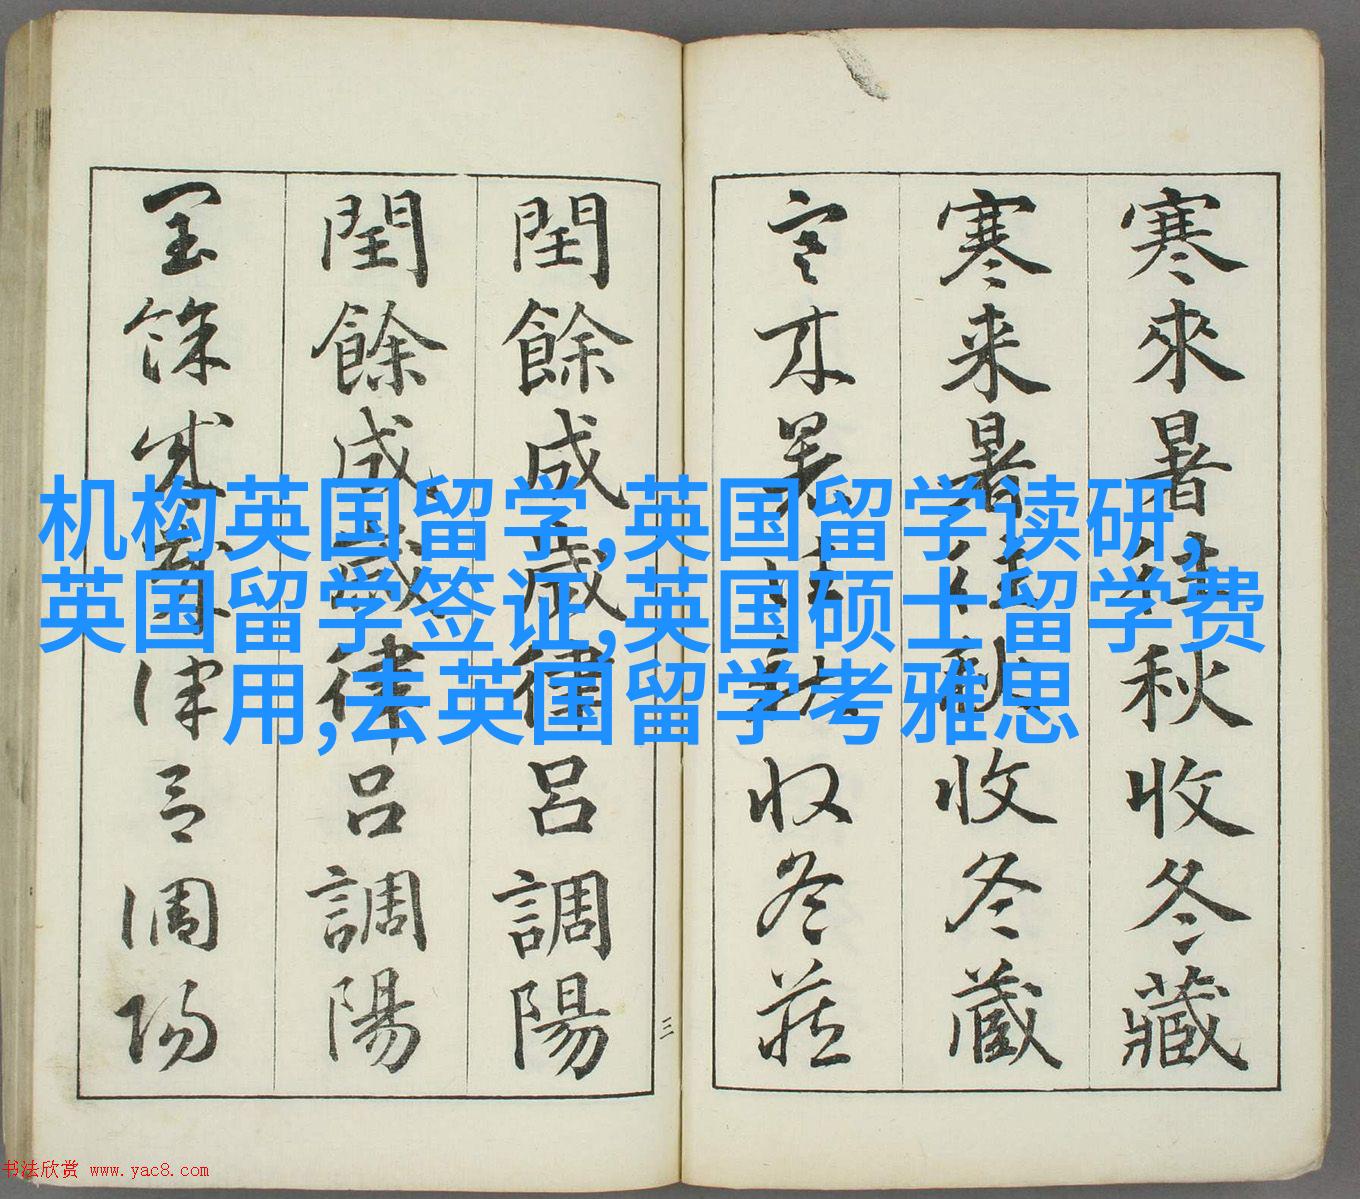 寒來暑往秋收冬藏
寒来暑往秋收冬藏
寒来暑往秋收冬藏
三
閏餘成歲律呂調陽
閏餘成歲律呂調陽
閏餘成歲律呂調陽
机构英国留学,英国留学读研,
英国留学签证,英国硕士留学费
用,去英国留学考雅思
书法欣赏 www.yac8.com